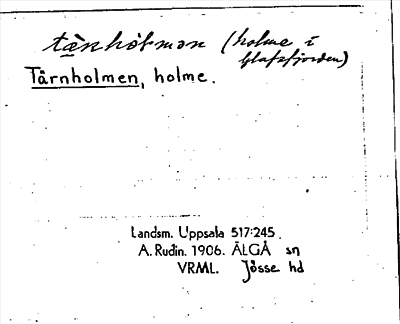 tä̀nhɷ́lmən (holme i
Glafsfjorden)
Tårnholmen, holme.
Landsm. Uppsala 517:245
A. Rudin. 1906. ÄLGÅ sn
VRML. Jösse hd